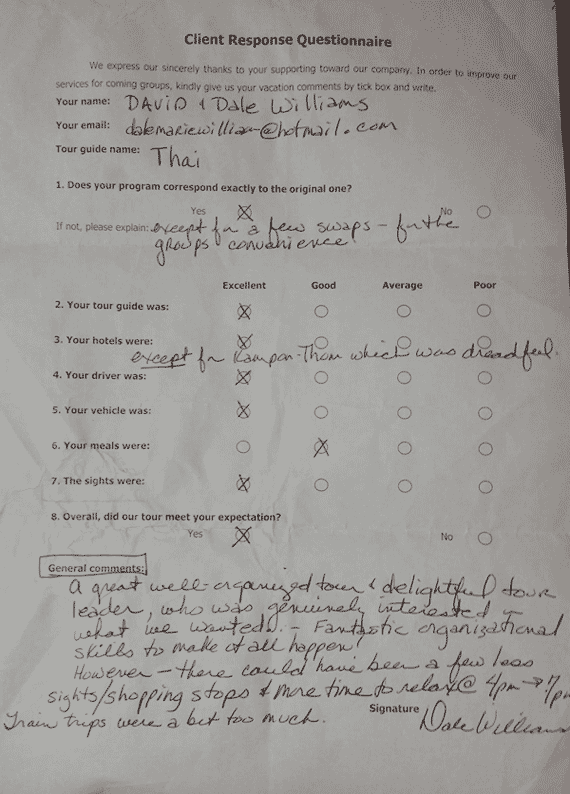 Client Response Questionnaire
We express our sincerely thanks to your supporting toward our company. In order to improve our
services for coming groups, kindly give us your vacation comments by tick box and write.
Your name: DAVID & Dale Williams
Your email: dalemariewilliam@hotmail.com
Tour guide name: Thai
1. Does your program correspond exactly to the original one?
Yes No
If not, please explain: except for a few swaps - for the
groups' convenience!
Excellent Good Average Poor
2. Your tour guide was:
3. Your hotels were:
except for Kampon Thom which was dreadful.
4. Your driver was:
5. Your vehicle was:
6. Your meals were:
7. The sights were:
8. Overall, did our tour meet your expectation?
Yes No
General comments:
A great well-organized tour & delightful tour
leader, who was genuinely interested in
what we wanted. - Fantastic organizational
skills to make it all happen!
However - there could have been a few less
sights/shopping stops & more time to relax @ 4pm → 7pm
Train trips were a bit too much.
Signature Dale Williams